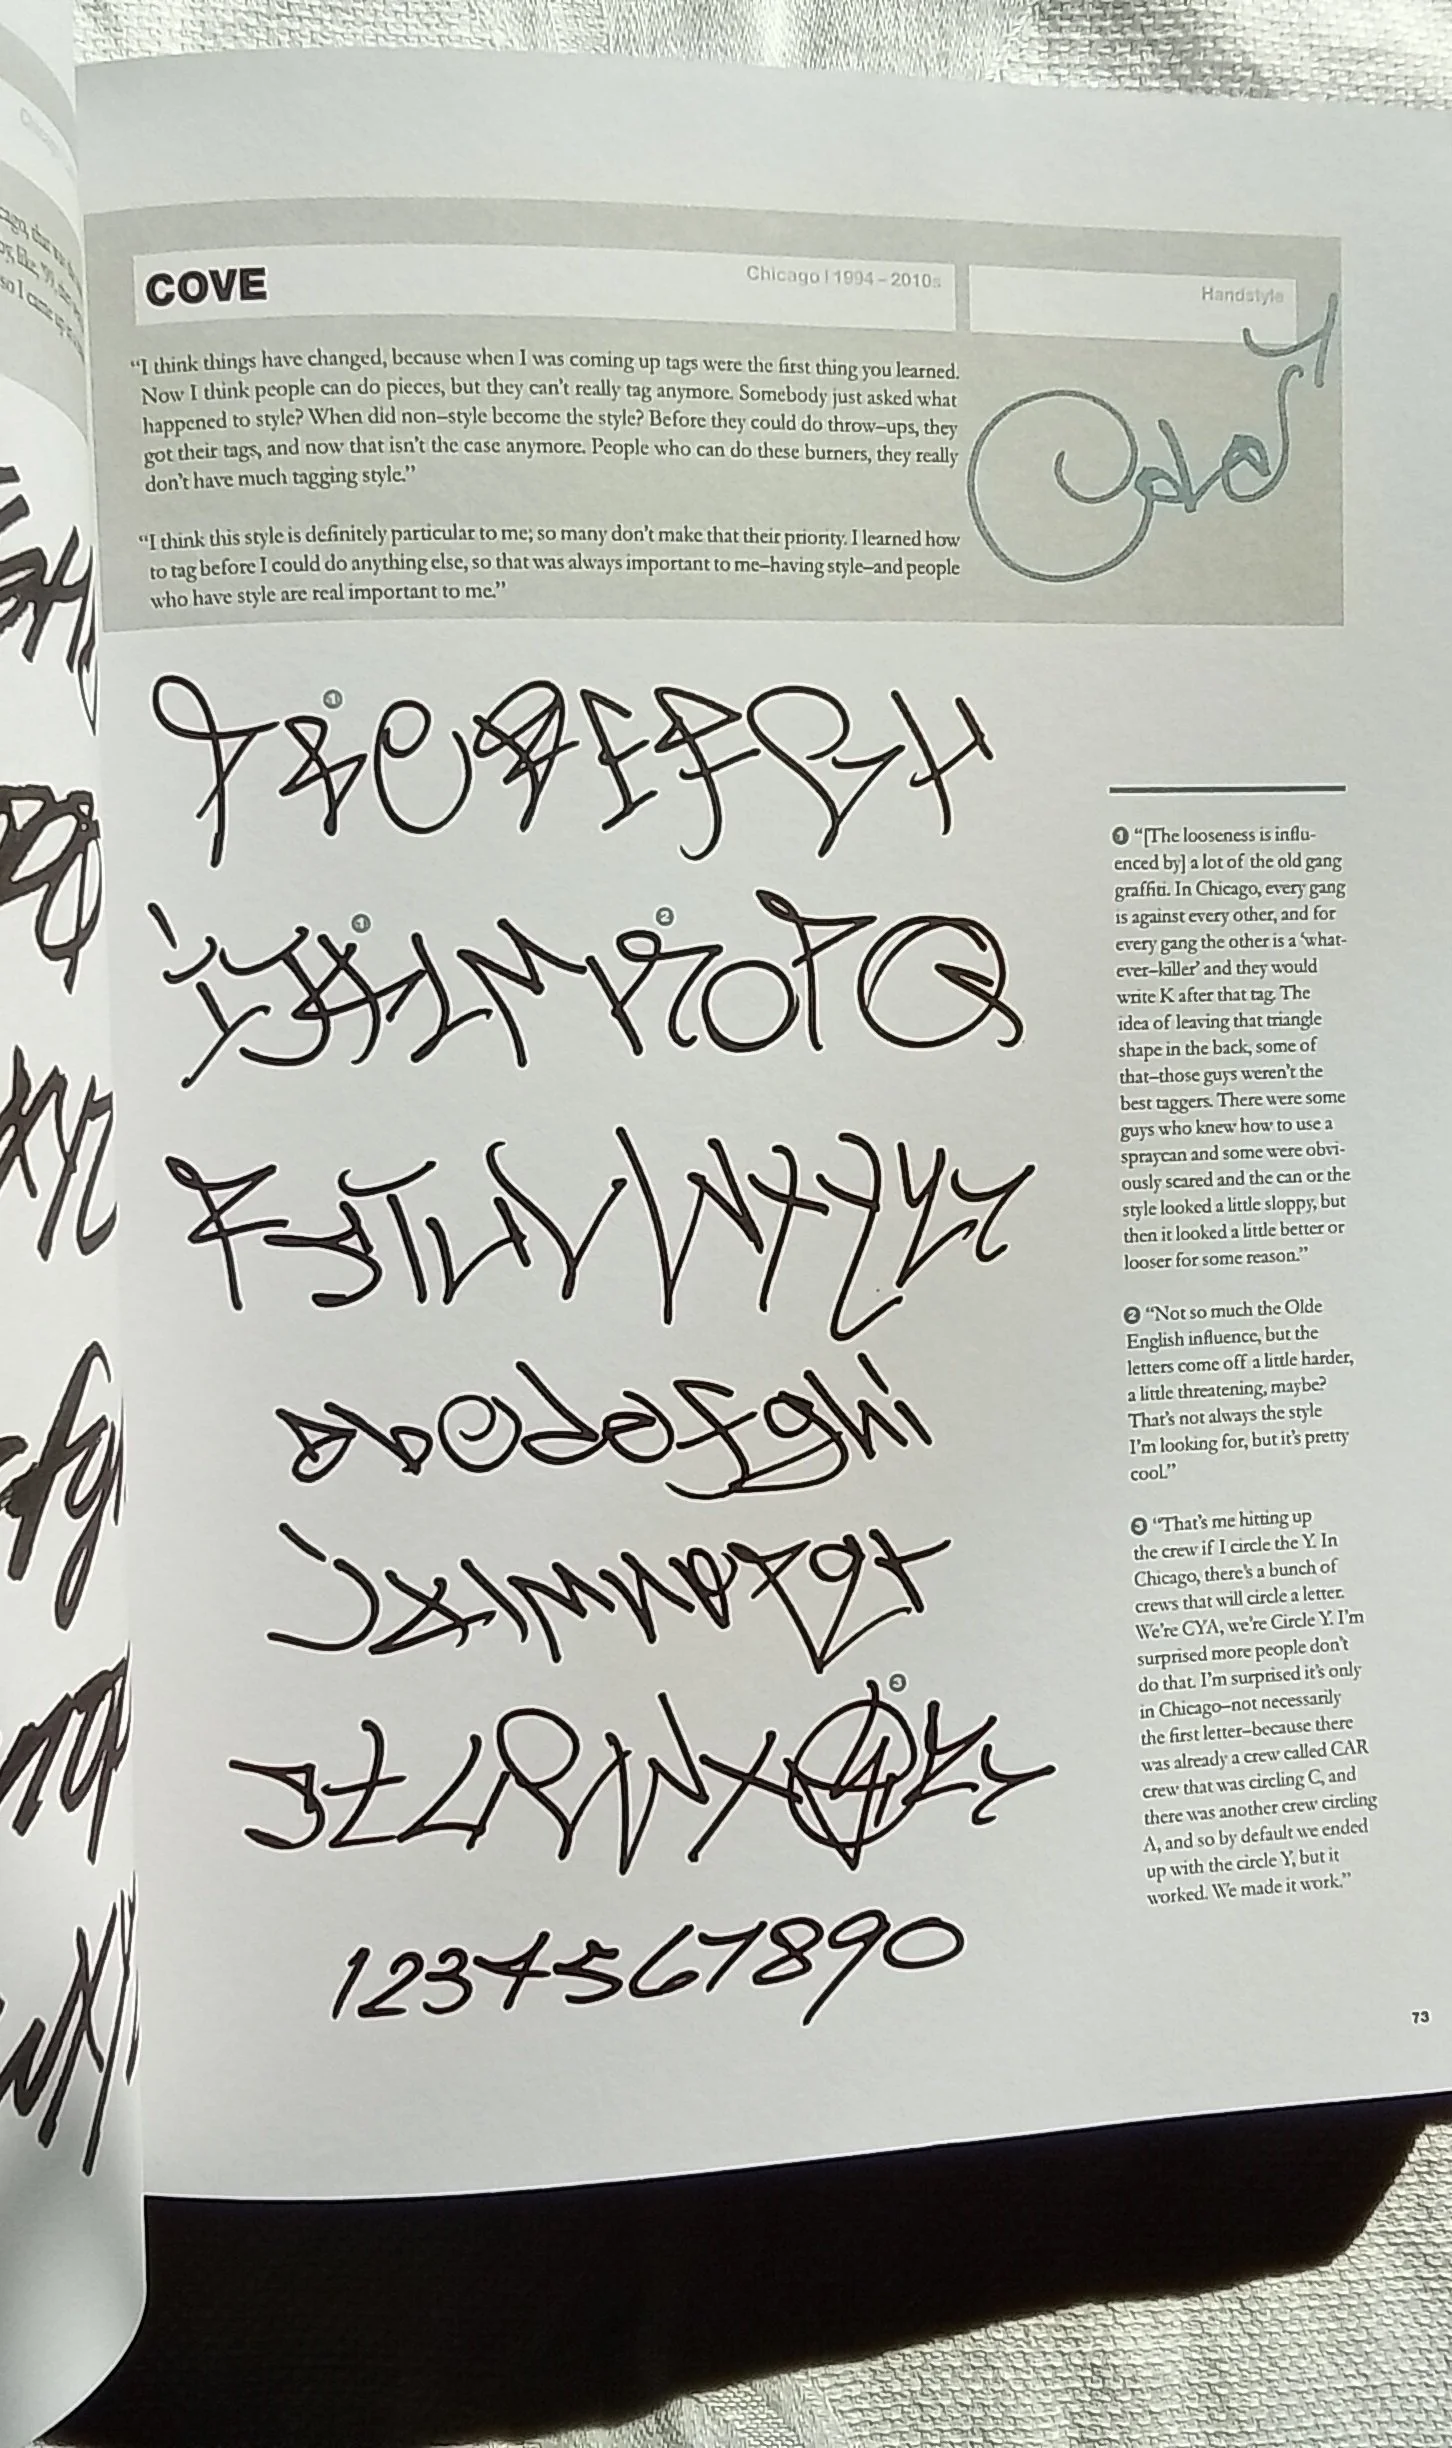 COVE
Chicago | 1994–2010s
Handstyle
“I think things have changed, because when I was coming up tags were the first thing you learned.
Now I think people can do pieces, but they can’t really tag anymore. Somebody just asked what
happened to style? When did non–style become the style? Before they could do throw–ups, they
got their tags, and now that isn’t the case anymore. People who can do these burners, they really
don’t have much tagging style.”
“I think this style is definitely particular to me; so many don’t make that their priority. I learned how
to tag before I could do anything else, so that was always important to me–having style–and people
who have style are real important to me.”
1
A B C D E F G H
1 2
I J K L M N O P Q
R S T U V W X Y Z
a b c d e f g h i
j k l m n o p q r
3
s t u v w x y z
1234567890
1 “[The looseness is influ-
enced by] a lot of the old gang
graffiti. In Chicago, every gang
is against every other, and for
every gang the other is a ‘what-
ever–killer’ and they would
write K after that tag. The
idea of leaving that triangle
shape in the back, some of
that–those guys weren’t the
best taggers. There were some
guys who knew how to use a
spraycan and some were obvi-
ously scared and the can or the
style looked a little sloppy, but
then it looked a little better or
looser for some reason.”
2 “Not so much the Olde
English influence, but the
letters come off a little harder,
a little threatening, maybe?
That’s not always the style
I’m looking for, but it’s pretty
cool.”
3 “That’s me hitting up
the crew if I circle the Y. In
Chicago, there’s a bunch of
crews that will circle a letter.
We’re CYA, we’re Circle Y. I’m
surprised more people don’t
do that. I’m surprised it’s only
in Chicago–not necessarily
the first letter–because there
was already a crew called CAR
crew that was circling C, and
there was another crew circling
A, and so by default we ended
up with the circle Y, but it
worked. We made it work.”
73